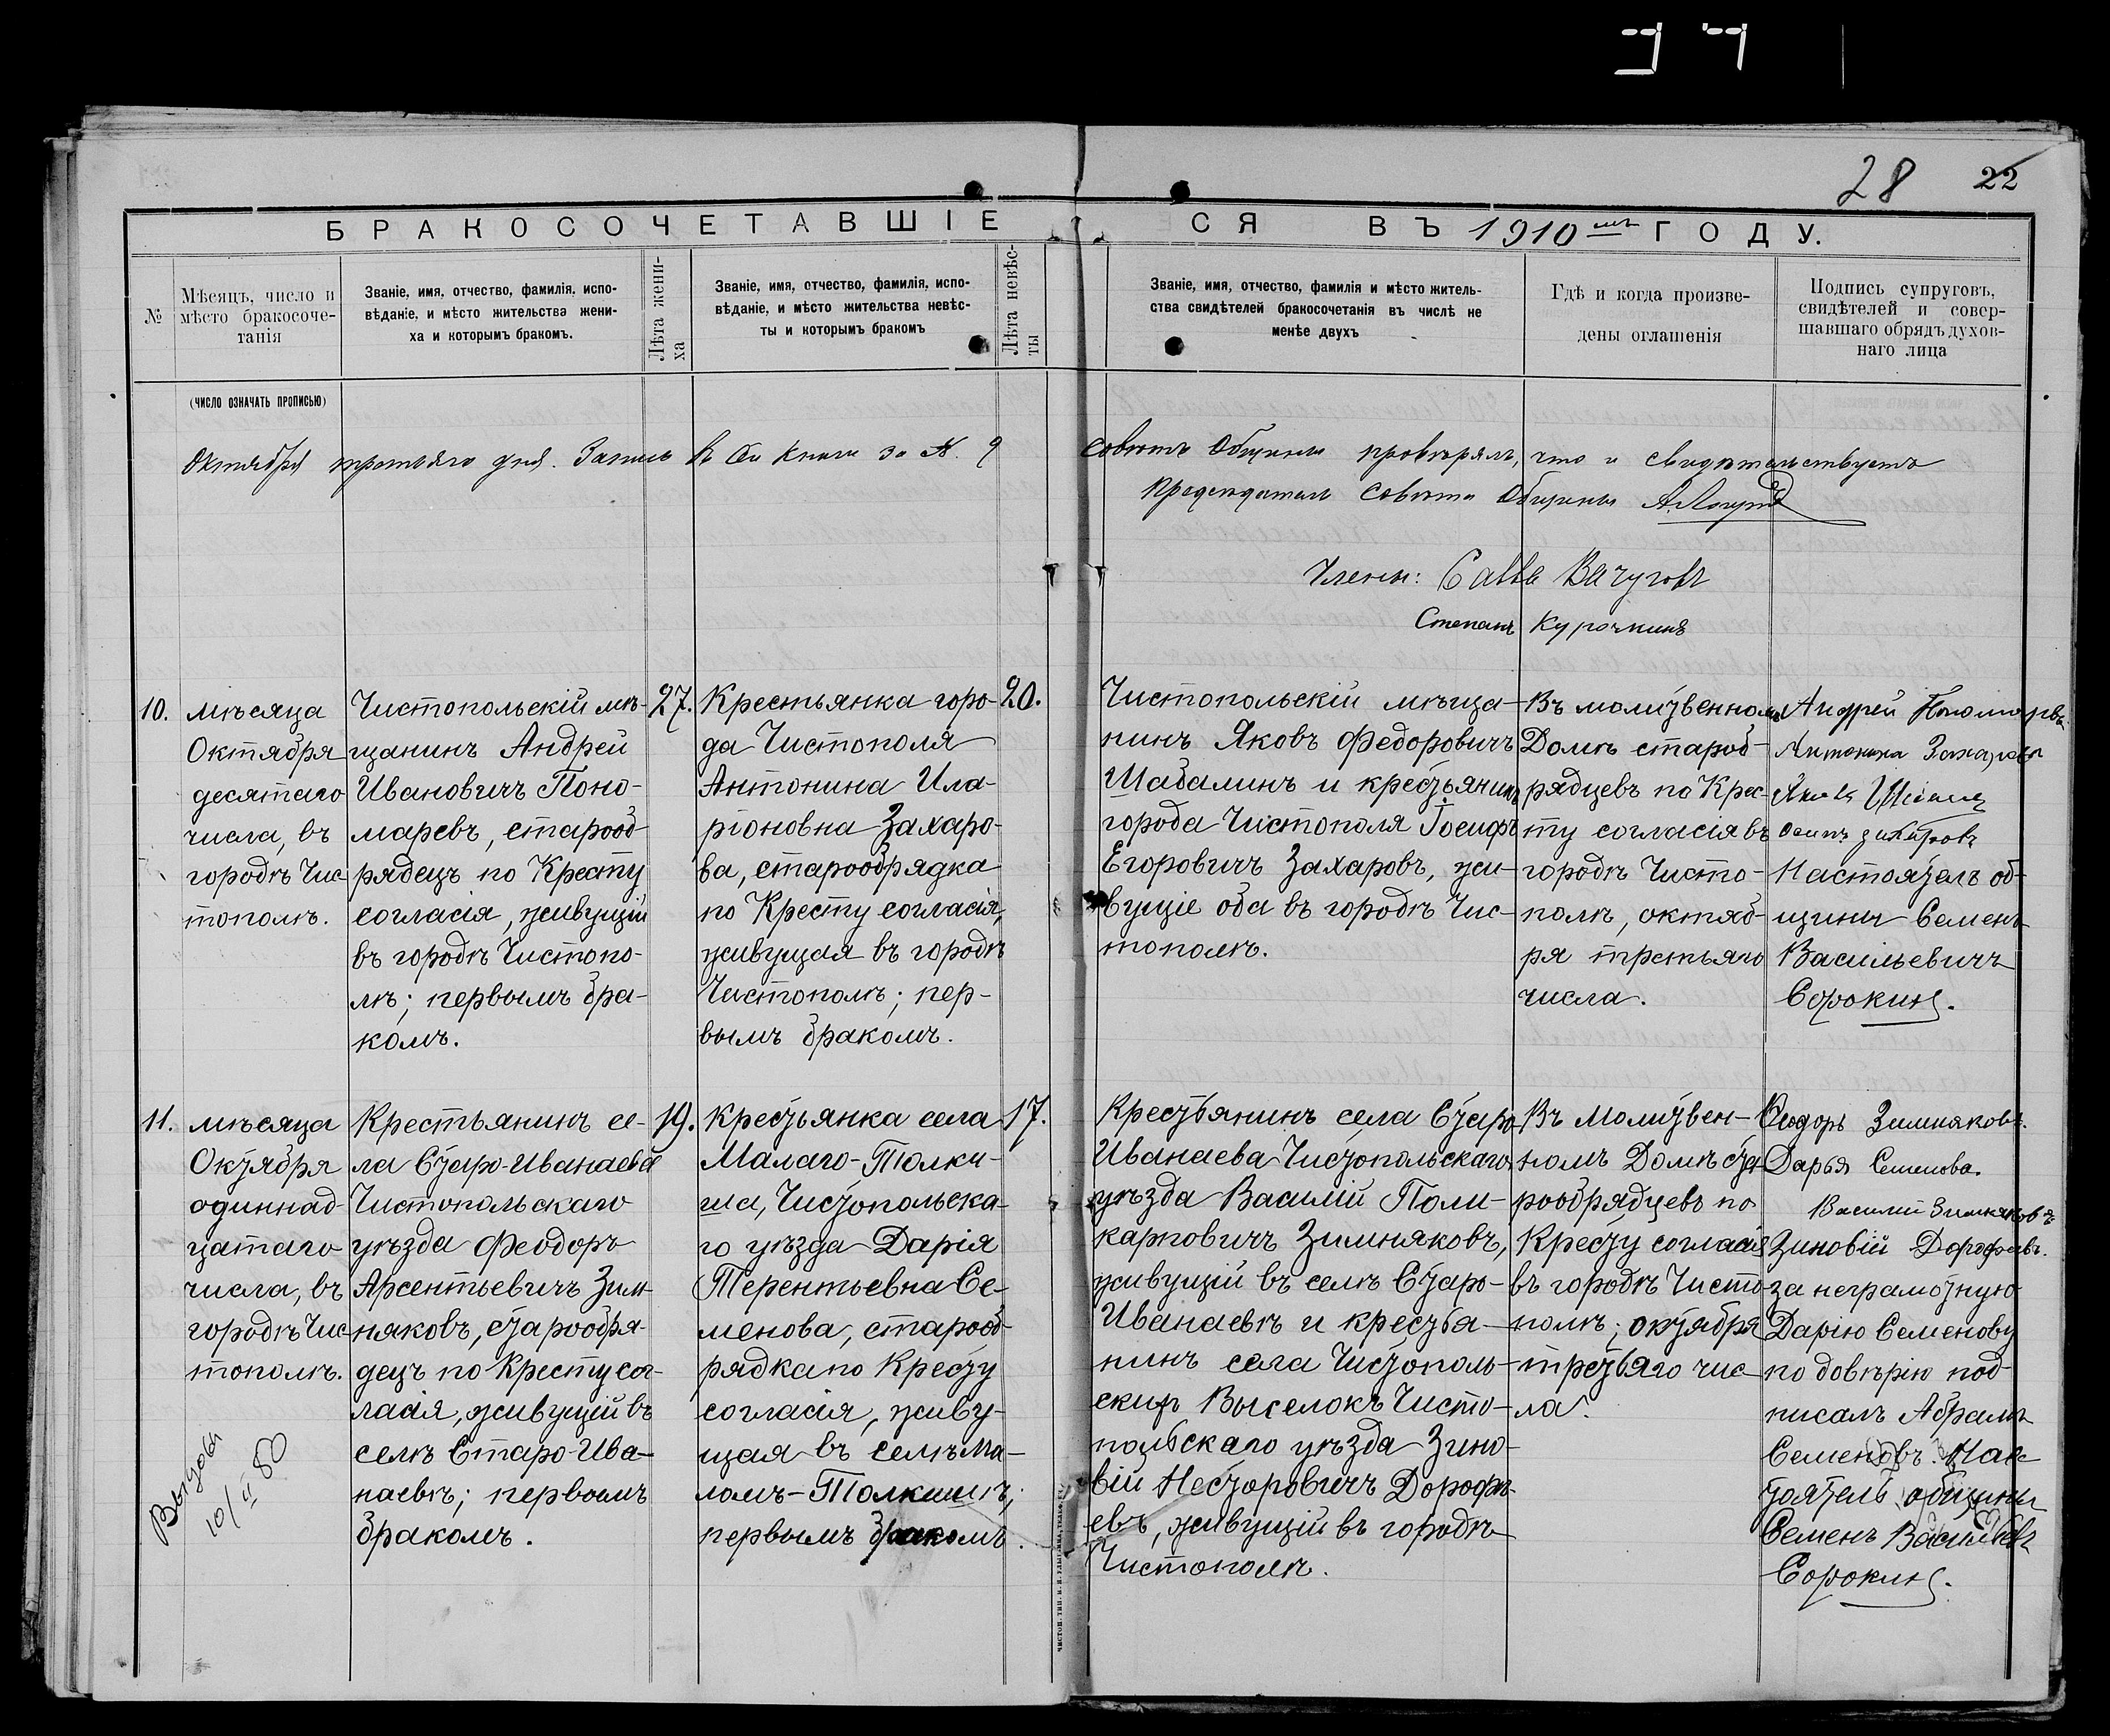 28 22
БРАКОСОЧЕТАВШІЕСЯ ВЪ 1910 мъ ГОДУ.
№
Мѣсяцъ, число и
мѣсто бракосоче-
танія
Званіе, имя, отчество, фамилія, испо-
вѣданіе, и мѣсто жительства жени-
ха и которымъ бракомъ.
Лѣта жени-
ха
Званіе, имя, отчество, фамилія, испо-
вѣданіе, и мѣсто жительства невѣс-
ты и которымъ бракомъ
Лѣта невѣс-
ты
Званіе, имя, отчество, фамилія и мѣсто житель-
ства свидѣтелей бракосочетанія въ числѣ не
менѣе двухъ
Гдѣ и когда произве-
дены оглашенія
Подпись супруговъ,
свидѣтелей и совер-
шавшаго обрядъ духов-
наго лица
(ЧИСЛО ОЗНАЧАТЬ ПРОПИСЬЮ)
Октября третьяго дня. Запись в сей книги за №. 9 Совѣтъ Общины провѣрялъ, что и свидѣтельствуетъ
Предсѣдатель Совѣта Общины
Члены: Савва Вачуговъ
Степанъ Курочкинъ
10.
мѣсяца
Октября
десятаго
числа, въ
городѣ Чис
тополѣ.
Чистопольскій мѣ-
щанинъ Андрей
Ивановичъ Поно-
маревъ, старооб-
рядецъ по Кресту
согласія, живущій
въ городѣ Чистопо-
лѣ; первымъ бра-
комъ.
27.
Крестьянка горо-
да Чистополя
Антонина Ила-
ріоновна Захаро-
ва, старообрядка
по Кресту согласія,
живущая въ городѣ
Чистополѣ; пер-
вымъ бракомъ.
20.
Чистопольскій мѣща-
нинъ Яковъ Федоровичъ
Шабалинъ и крестьянинъ
города Чистополя Іосифъ
Егоровичъ Захаровъ, жи-
вущіе оба въ городѣ Чис-
тополѣ.
Въ молитвенномъ
Домѣ старооб-
рядцевъ по Крес-
ту согласія въ
городѣ Чисто-
полѣ, октяб-
ря третьяго
числа.
Андрей Пономаревъ
Антонина Захарова
Яковъ
Осипъ Захаровъ
Настоятель об-
щины Семенъ
Васильевичъ
Сорокинъ.
11.
мѣсяца
Октября
одиннад-
цатаго
числа, въ
городѣ Чис
тополѣ.
Крестьянинъ се-
ла Старо-Иванаева
Чистопольскаго
уѣзда Феодоръ
Арсентьевичъ Зим-
няковъ, старообря-
децъ по Кресту сог-
ласія, живущій въ
селѣ Старо-Ива-
наевѣ; первымъ
бракомъ.
19.
Крестьянка села
Малаго-Толки-
ша, Чистопольска-
го уѣзда Дарія
Терентьевна Се-
менова, старооб-
рядка по Кресту
согласія, живу-
щая въ селѣ Ма-
ломъ-Толкишѣ;
первымъ бракомъ.
17.
Крестьянинъ села Старо
Иванаева Чистопольскаго
уѣзда Василій Поли-
карповичъ Зимняковъ,
живущій въ селѣ Старо-
Иванаевѣ и крестья-
нинъ села Чистополь-
скихъ Выселокъ Чисто-
польскаго уѣзда Зино-
вій Несторовичъ Дорофѣ-
евъ, живущій въ городѣ
Чистополѣ.
Въ Молитвен-
номъ Домѣ ста
рообрядцевъ по
Кресту согласія
въ городѣ Чисто
полѣ; октября
третьяго чис
ла.
Феодоръ Зимняковъ.
Дарья Семенова.
Василій Зимняковъ
Зиновій Дорофѣевъ.
за неграмотную
Дарію Семенову
по довѣрію под-
писалъ Абрамъ
Семеновъ. Нас-
тоятель общины
Семенъ Васильевъ
Сорокинъ.
10/II 80